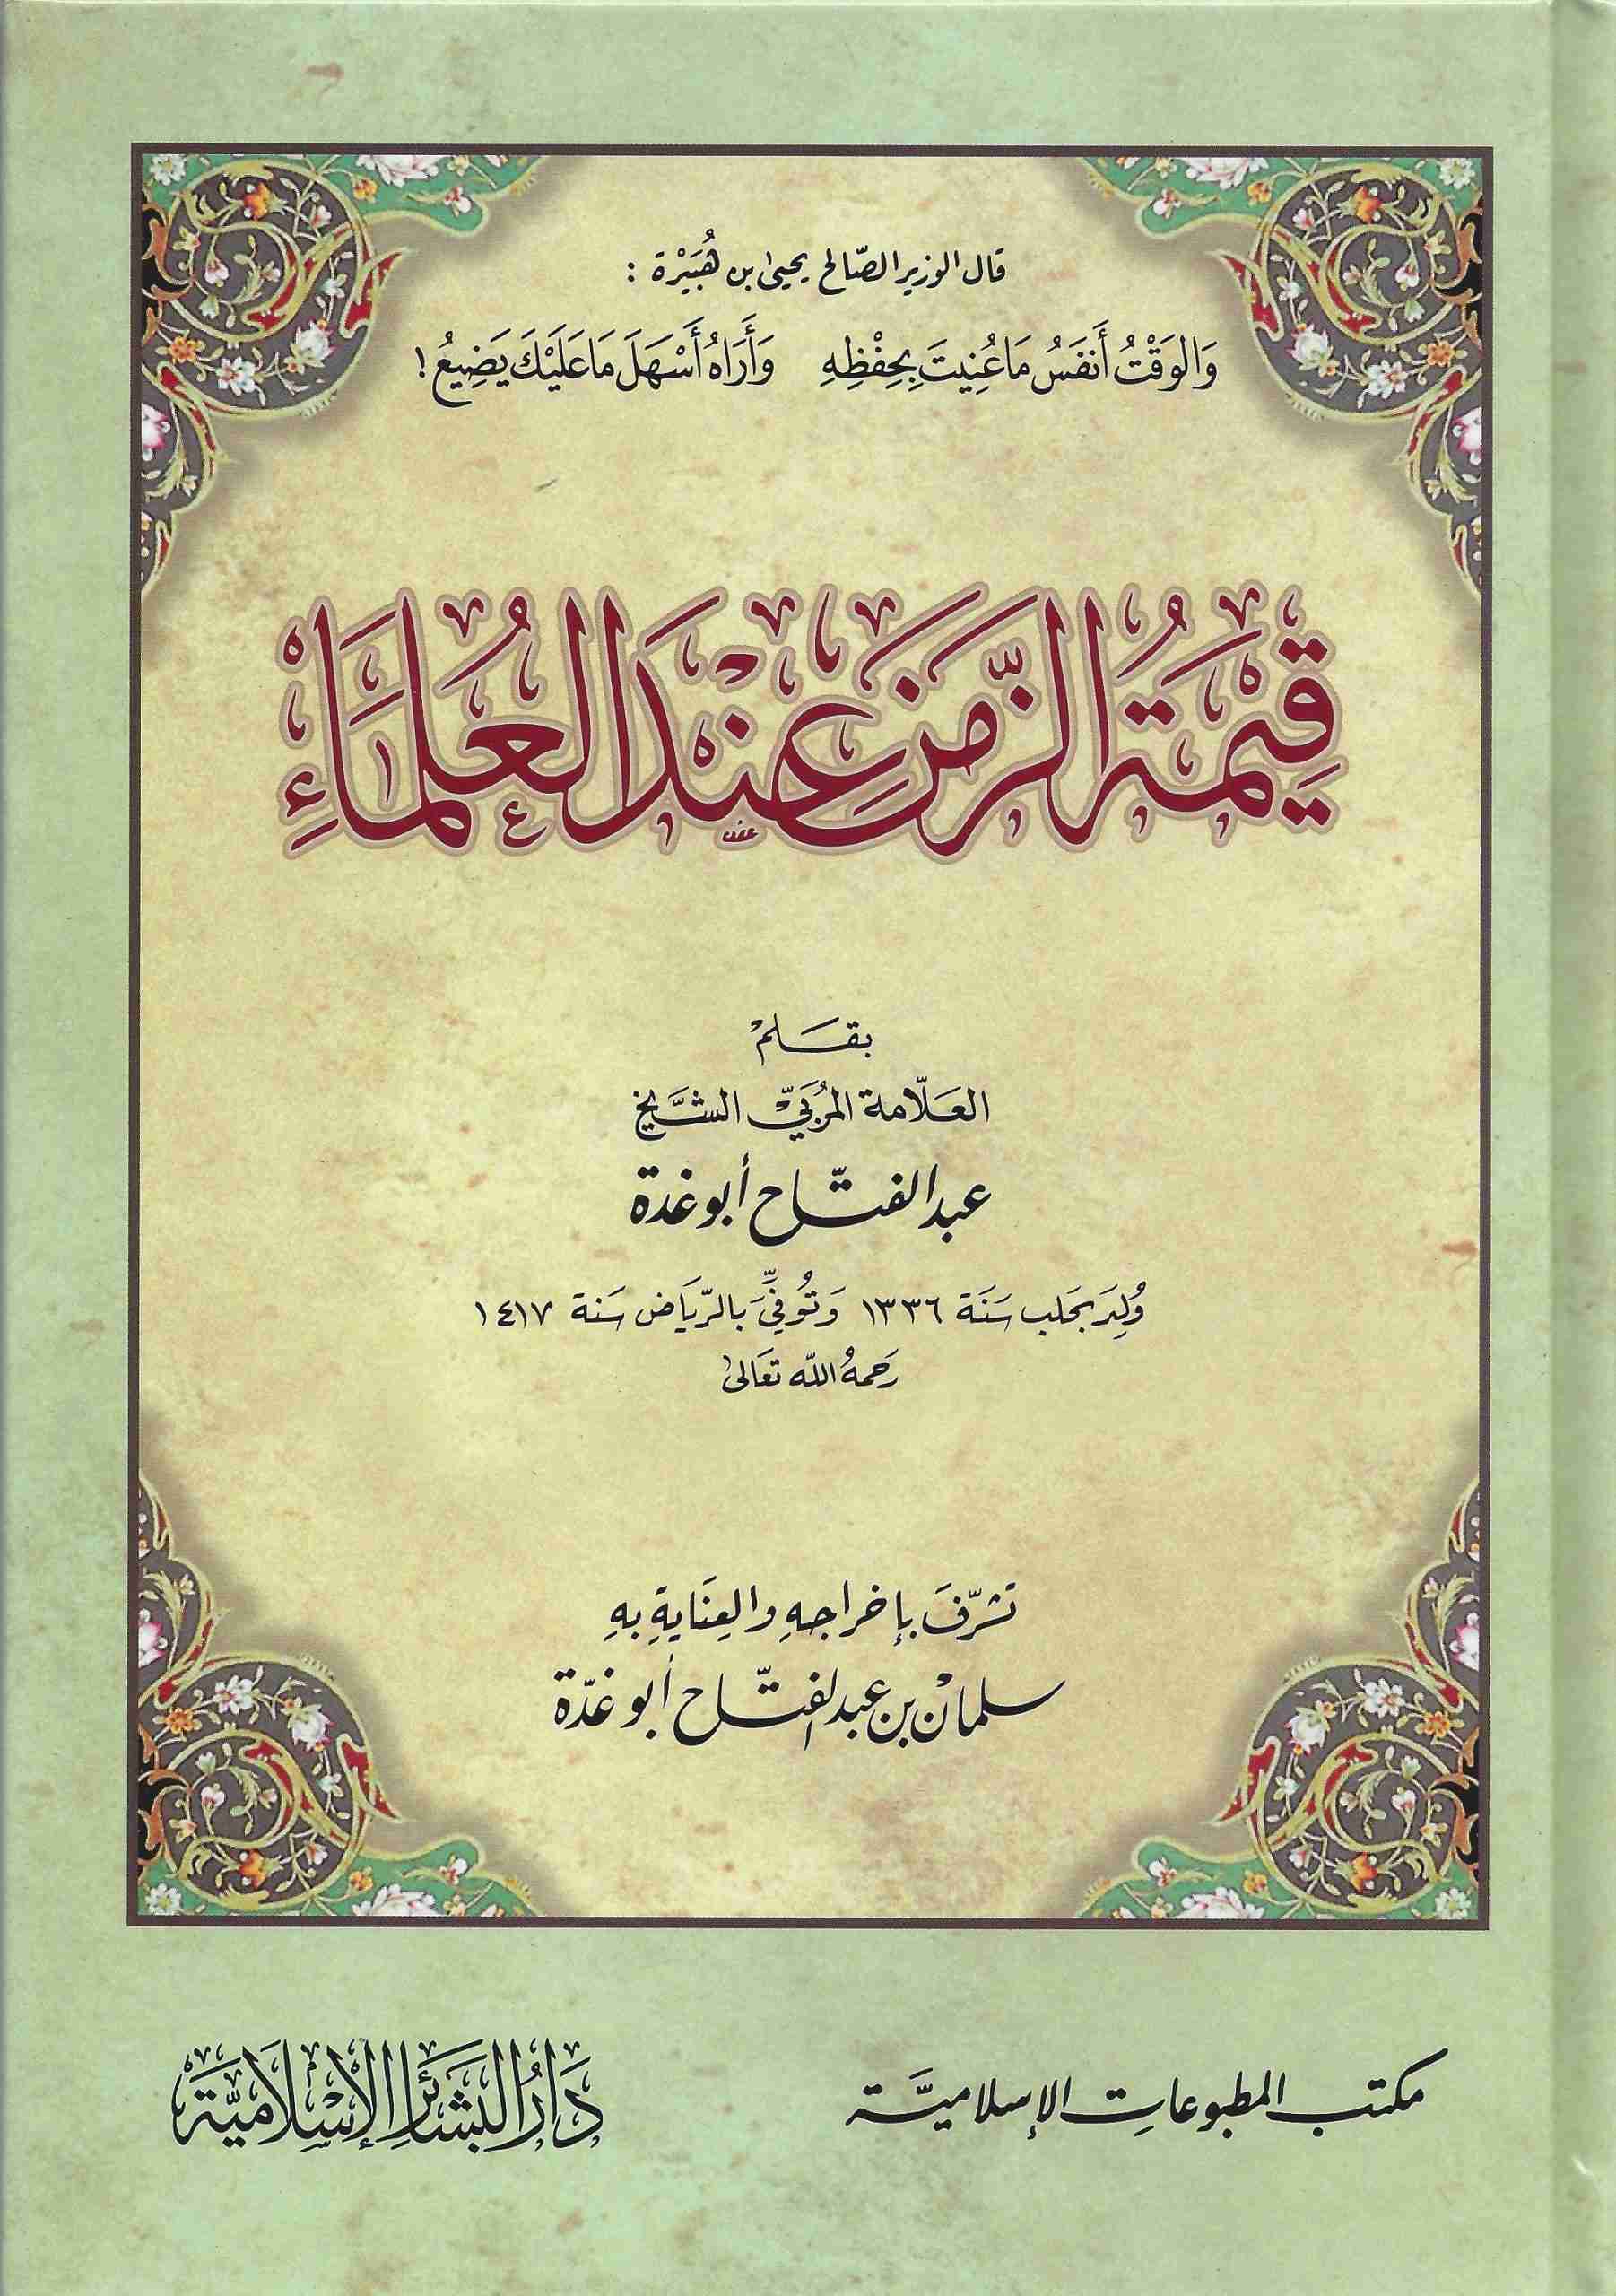 قال الوزير الصّالح يحيىٰ بن هُبَيْرة :
وَالوَقْتُ أَنفَسُ مَا عُنِيتَ بِحِفْظِهِ وَأَرَاهُ أَسْهَلَ مَا عَلَيْكَ يَضِيعُ !
قِيمَةُ الزَّمَنِ عِنْدَ العُلَمَاءِ
بقَلَمْ
العَلّامة المُرَبّيْ الشَّيخ
عبد الفتّاح أبو غدة
وُلِدَ بحَلب سَنَة ١٣٣٦ وَتُوُفِّيَ بالرّيَاض سَنة ١٤١٧
رَحمهُ اللّه تعَالىٰ
تشرّفَ بإخراجهِ والعِنَايةِ بهِ
سلمانْ بن عبد الفتّاح أبو غدّة
مكتب المطبوعاتِ الإسلاميَّة
دَارُ البَشَائِرِ الإِسْلَامِيَّة